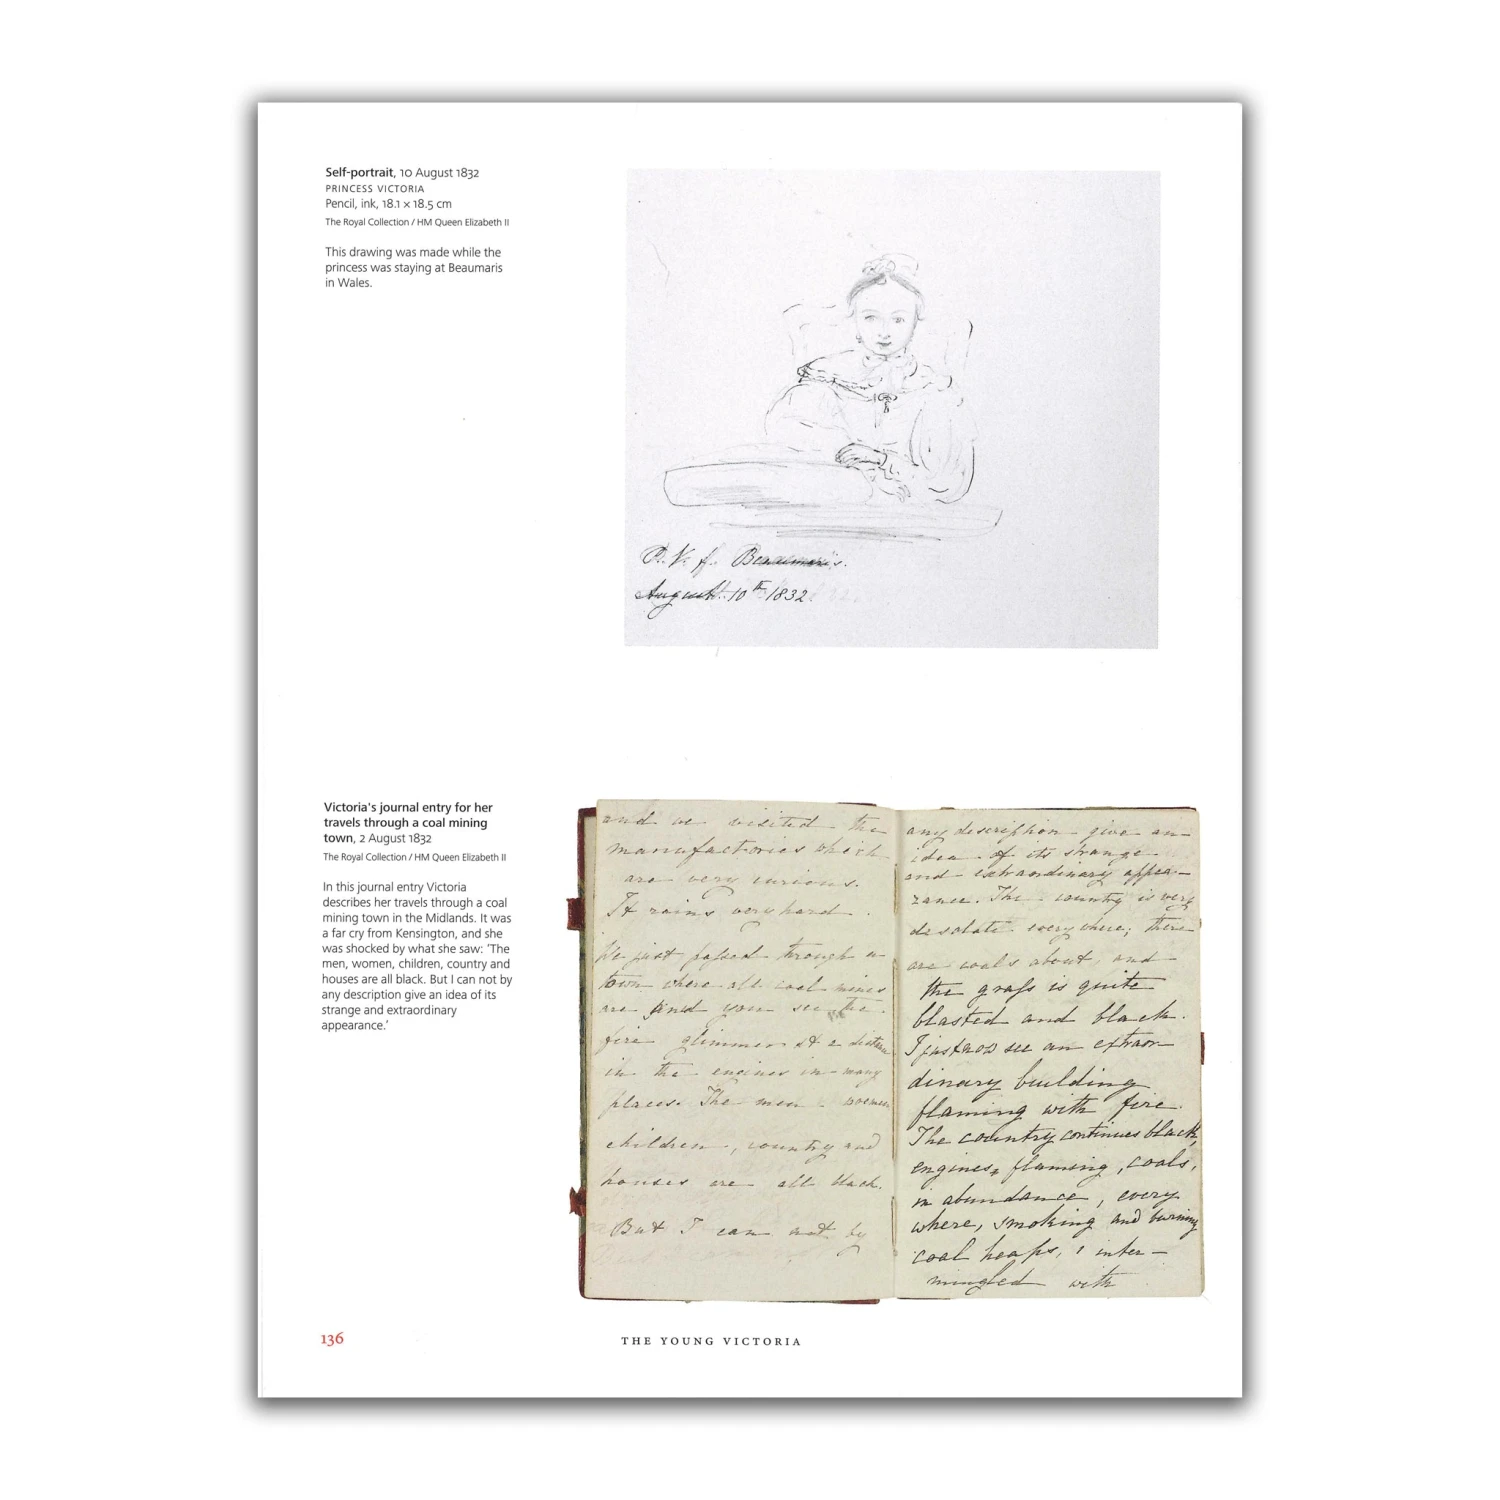 Self-portrait, 10 August 1832
PRINCESS VICTORIA
Pencil, ink, 18.1 × 18.5 cm
The Royal Collection / HM Queen Elizabeth II
This drawing was made while the
princess was staying at Beaumaris
in Wales.
P. V. f. Beaumaris.
August. 10th 1832.
Victoria's journal entry for her
travels through a coal mining
town, 2 August 1832
The Royal Collection / HM Queen Elizabeth II
In this journal entry Victoria
describes her travels through a coal
mining town in the Midlands. It was
a far cry from Kensington, and she
was shocked by what she saw: 'The
men, women, children, country and
houses are all black. But I can not by
any description give an idea of its
strange and extraordinary
appearance.'
and we visited the
manufactories which
are very curious.
It rains very hard.
We just passed through a
town where all coal mines
are and you see the
fire glimmer at a distance
in the engines in many
places. The men women
children, country and
houses are all black.
But I can not by
any description give an
idea of its strange
and extraordinary appea-
rance. The country is very
desolate every where; there
are coals about, and
the grass is quite
blasted and black.
I just now see an extraor
dinary building
flaming with fire.
The country continues black,
engines, flaming, coals,
in abundance, every
where, smoking and burning
coal heaps, inter-
mingled with
136
THE YOUNG VICTORIA